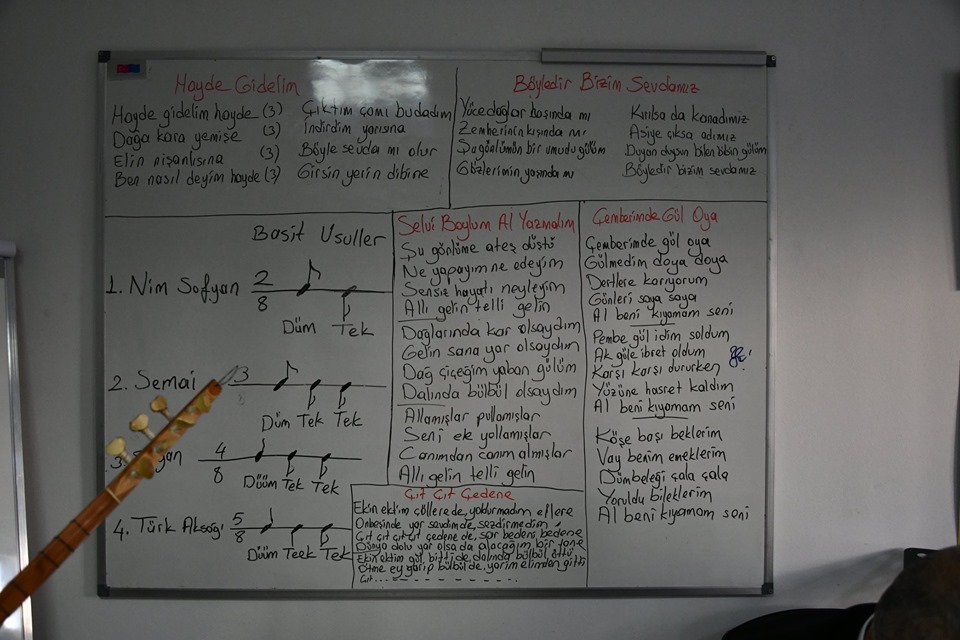 Hayde Gidelim
Hayde gidelim hayde (3)
Dağa kara yemişe (3)
Elin nişanlısına (3)
Ben nasıl deyim hayde (3)
Çıktım çamı budadım
İndirdim yarısına
Böyle sevda mı olur
Girsin yerin dibine
Böyledir Bizim Sevdamız
Yüce dağlar başında mı
Zemherinin kışında mı
Şu gönlümün bir umudu gülüm
Gözlerimin yaşında mı
Kırılsa da kanadımız
Asiye çıksa adımız
Duyan duysun bilen bilsin gülüm
Böyledir bizim sevdamız
Basit Usuller
1. Nim Sofyan 2/8
Düm Tek
2. Semai 3
Düm Tek Tek
3. 4/8
Düüm Tek Tek
4. Türk Aksağı 5/8
Düüm Teek Tek
Selvi Boylum Al Yazmalım
Şu gönlüme ateş düştü
Ne yapayım ne edeyim
Sensiz hayatı neyleyim
Allı gelin telli gelin
Dağlarında kar olsaydım
Gelin sana yar olsaydım
Dağ çiçeğim yaban gülüm
Dalında bülbül olsaydım
Allamışlar pullamışlar
Seni ele yollamışlar
Canımdan canım almışlar
Allı gelin telli gelin
Çıt Çıt Çedene
Ekin ektim çöllere de, yoldurmadım ellere
Onbeşinde yar sevdim de, sezdirmedim
Çıt çıt çıt çıt çedene de, sar bedeni bedene
Dünya dolu yar olsa da alacağım bir tane
Ekin ektim gül bitti de, dalında bülbül öttü
Ötme ey garip bülbül de, yarim elimden gitti
Çıt
Çemberimde Gül Oya
Çemberimde gül oya
Gülmedim doya doya
Dertlere karıyorum
Günleri saya saya
Al beni kıyamam seni
Pembe gül idim soldum
Ak güle ibret oldum
Karşı karşı dururken
Yüzüne hasret kaldım
Al beni kıyamam seni
Köşe başı beklerim
Vay benim emeklerim
Dümbeleği çala çala
Yoruldu bileklerim
Al beni kıyamam seni